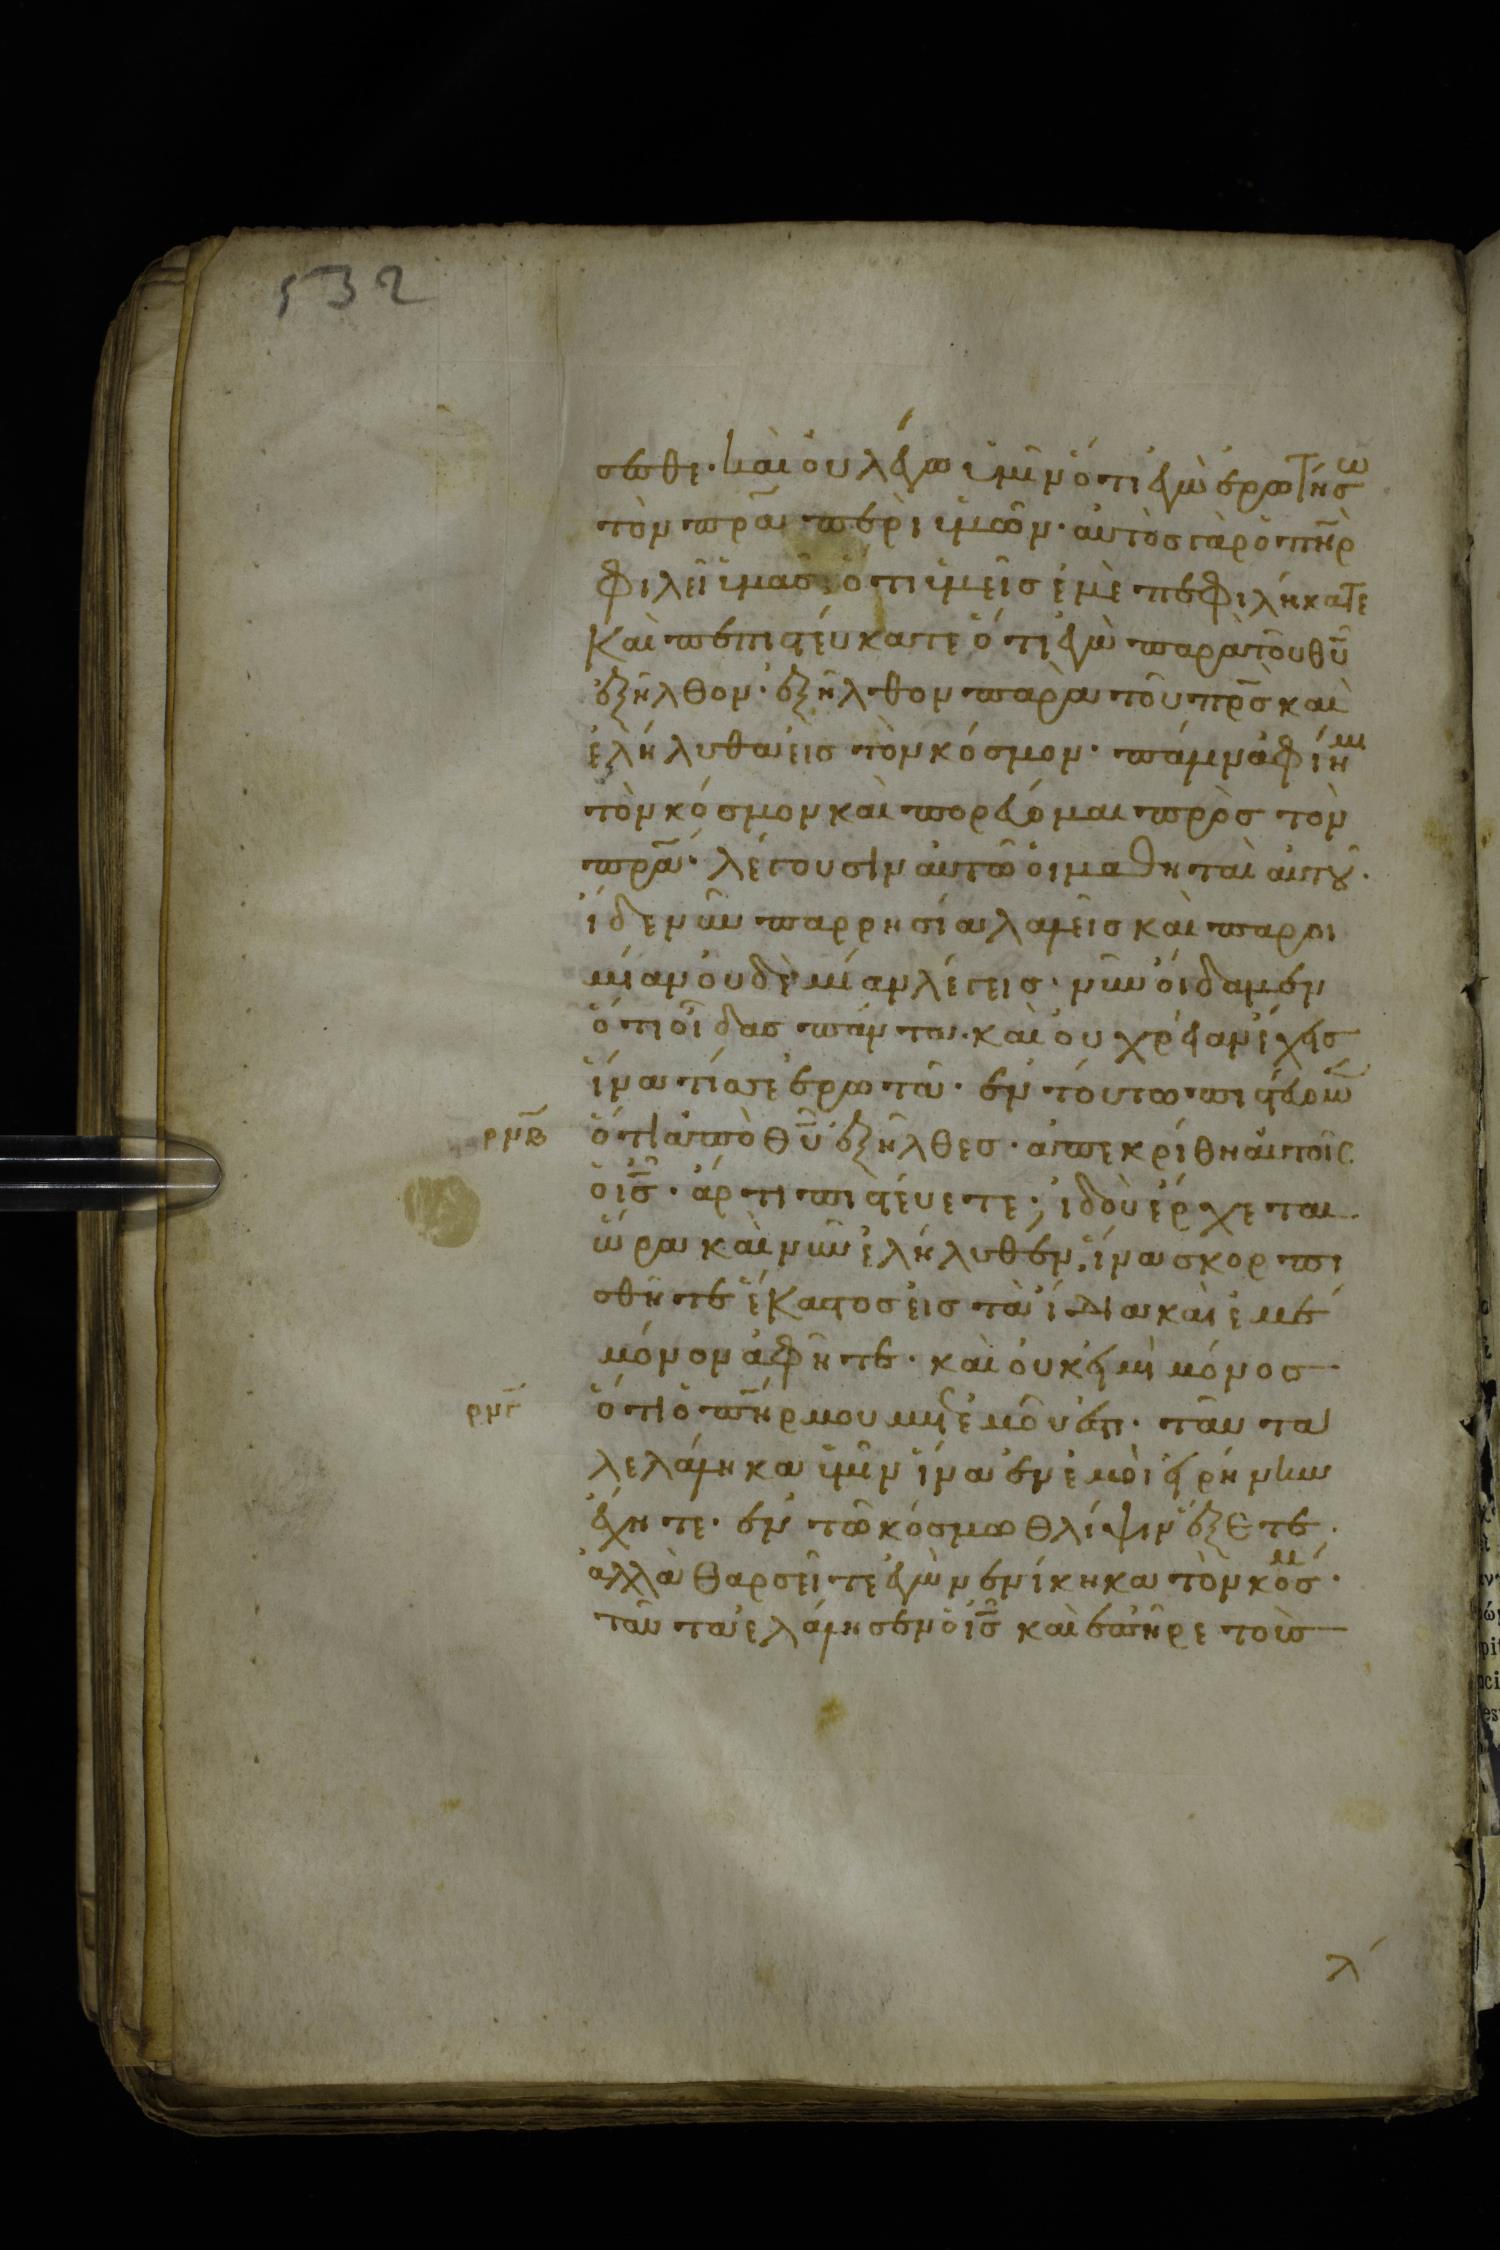 532
σεσθε· καὶ οὐ λέγω ὑμῖν ὅτι ἐγὼ ἐρωτήσω
τὸν πρᾱ περὶ ὑμῶν· αὐτὸς γὰρ ὁ πη̄ρ
φιλεῖ ὑμᾶς· ὅτι ὑμεῖς ἐμὲ πεφιλήκατε
καὶ πεπιστεύκατε ὅτι ἐγὼ παρὰ τοῦ θῡ
ἐξῆλθον· ἐξῆλθον παρὰ τοῦ πρ̄ς καὶ
ἐλήλυθα εἰς τὸν κόσμον· πάλιν ἀφίημι
τὸν κόσμον καὶ πορεύομαι πρὸς τὸν
πρᾱ· λέγουσιν αὐτῶ οἱ μαθηταὶ αὐτοῦ·
ἴδε νῦν παρρησία λαλεῖς καὶ παροι
μίαν οὐδὲμίαν λέγεις· νῦν οἴδαμεν
ὅτι οἶδας πάντα· καὶ οὐ χρείαν ἔχεις
ἵνα τίς σε ἐρωτᾶ· ἐν τούτω πιστεύομεν
ρμβ ὅτι ἀπὸ θῡ ἐξῆλθες· ἀπεκρίθη αὐτοῖς
ὁ ις̄· ἄρτι πιστεύετε; ἰδοὺ ἔρχεται
ὥρα καὶ νῦν ἐλήλυθεν, ἵνα σκορπι
σθῆτε ἕκαστος εἰς τὰ ἴδια καὶ ἐμὲ
μόνον ἀφῆτε· καὶ οὐκ εἰμὶ μόνος
ρμγ ὅτι ὁ πη̄ρ μου μετ ἐμοῦ ἐστι· ταῦτα
λελάληκα ὑμῖν ἵνα ἐν ἐμοὶ εἰρήνην
ἔχητε· ἐν τῶ κόσμω θλίψιν ἕξετε·
ἀλλὰ θαρσεῖτε ἐγὼ νενίκηκα τὸν κόσμ·
ταῦτα ἐλάλησεν ὁ ις̄ καὶ ἐπῆρε τοὺς
λ